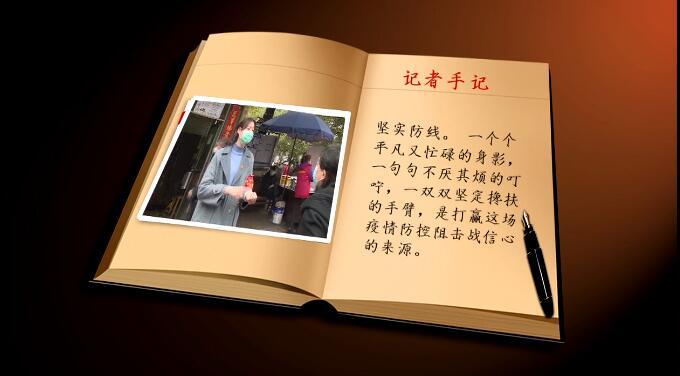 记者手记
坚实防线。 一个个
平凡又忙碌的身影，
一句句不厌其烦的叮
咛，一双双坚定搀扶
的手臂，是打赢这场
疫情防控阻击战信心
的来源。